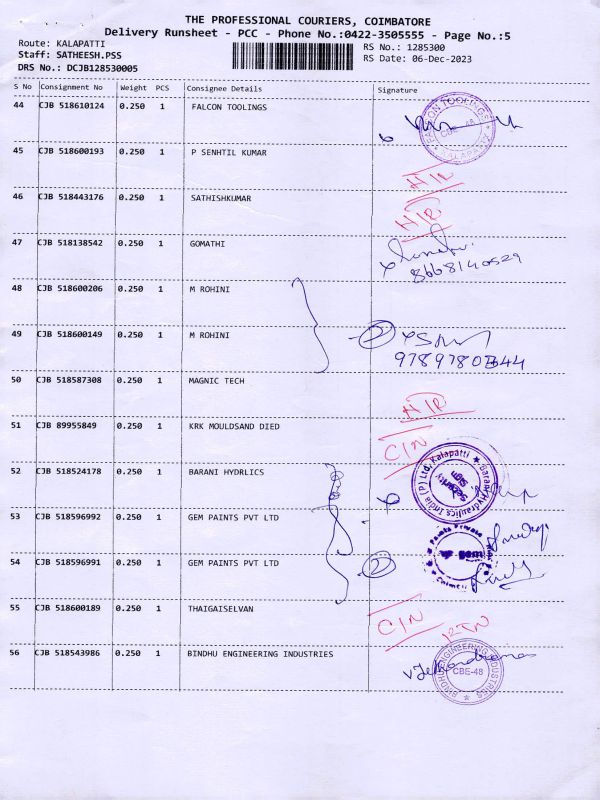 THE PROFESSIONAL COURIERS, COIMBATORE
Delivery Runsheet - PCC - Phone No.:0422-3505555 - Page No.:5
Route: KALAPATTI
RS No.: 1285300
Staff: SATHEESH.PSS
RS Date: 06-Dec-2023
DRS No.: DCJB128530005
S No Consignment No Weight PCS Consignee Details Signature
44 CJB 518610124 0.250 1 FALCON TOOLINGS
FALCON TOOLINGS
CBE-48
KALAPATTI
45 CJB 518600193 0.250 1 P SENHTIL KUMAR
H/R
46 CJB 518443176 0.250 1 SATHISHKUMAR
H/R
47 CJB 518138542 0.250 1 GOMATHI
8668140529
48 CJB 518600206 0.250 1 M ROHINI
49 CJB 518600149 0.250 1 M ROHINI
2
50 CJB 518587308 0.250 1 MAGNIC TECH
H/R
51 CJB 89955849 0.250 1 KRK MOULDSAND DIED
C/N
52 CJB 518524178 0.250 1 BARANI HYDRLICS
Barani Hydraulics India (P) Ltd, Kalapatti
Security
Sign
53 CJB 518596992 0.250 1 GEM PAINTS PVT LTD
54 CJB 518596991 0.250 1 GEM PAINTS PVT LTD
2
55 CJB 518600189 0.250 1 THAIGAISELVAN
C/N
56 CJB 518543986 0.250 1 BINDHU ENGINEERING INDUSTRIES
BINDHU ENGINEERING INDUSTRIES
CBE-48